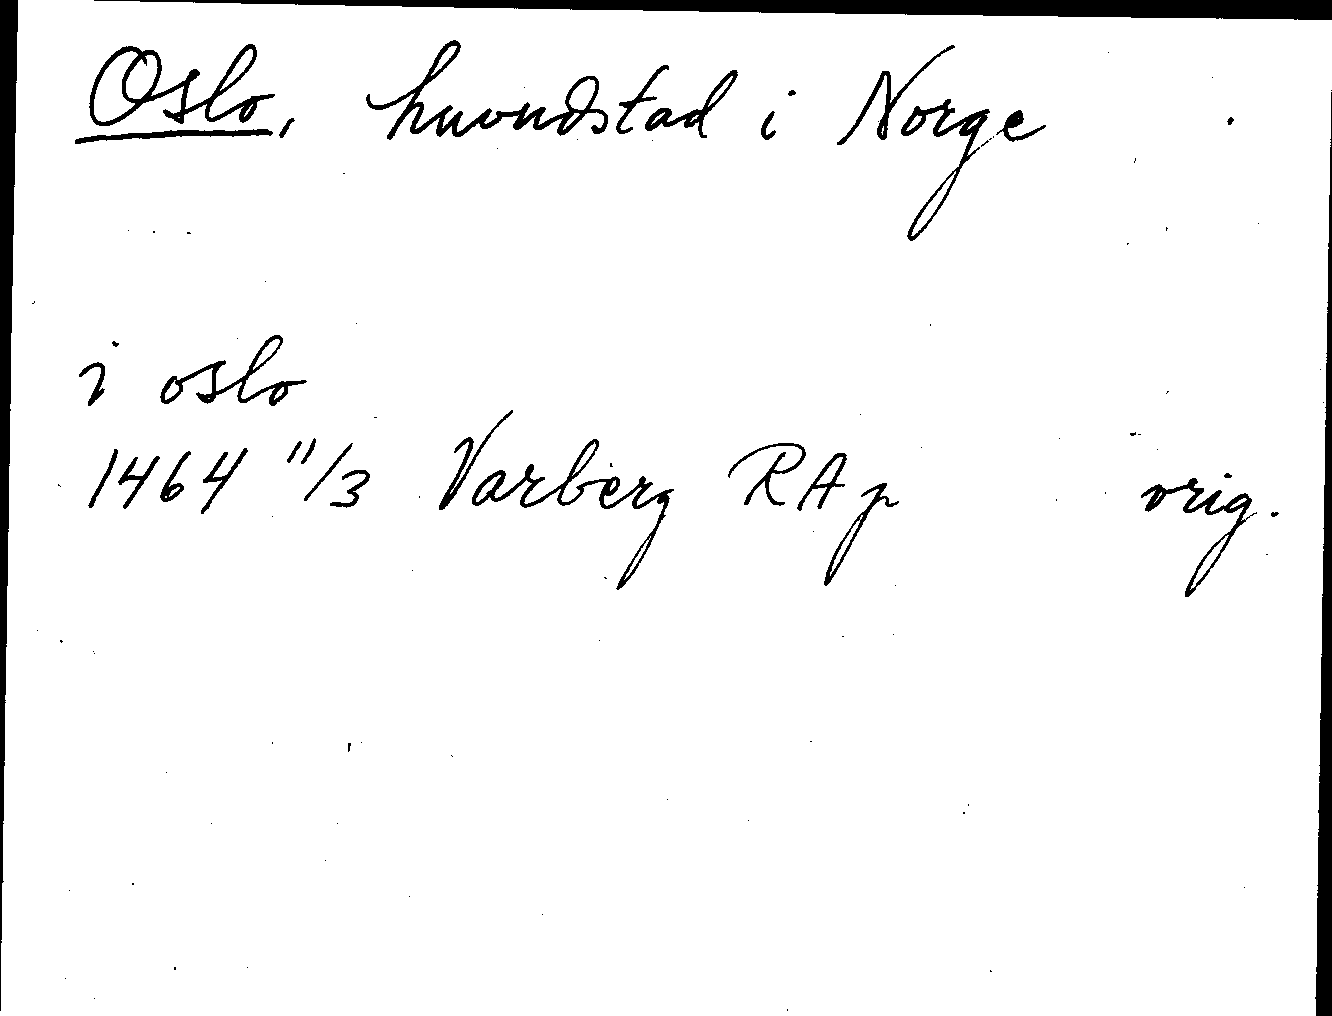 Oslo, huvudstad i Norge
i oslo
1464 11/3 Varberg RAp orig.